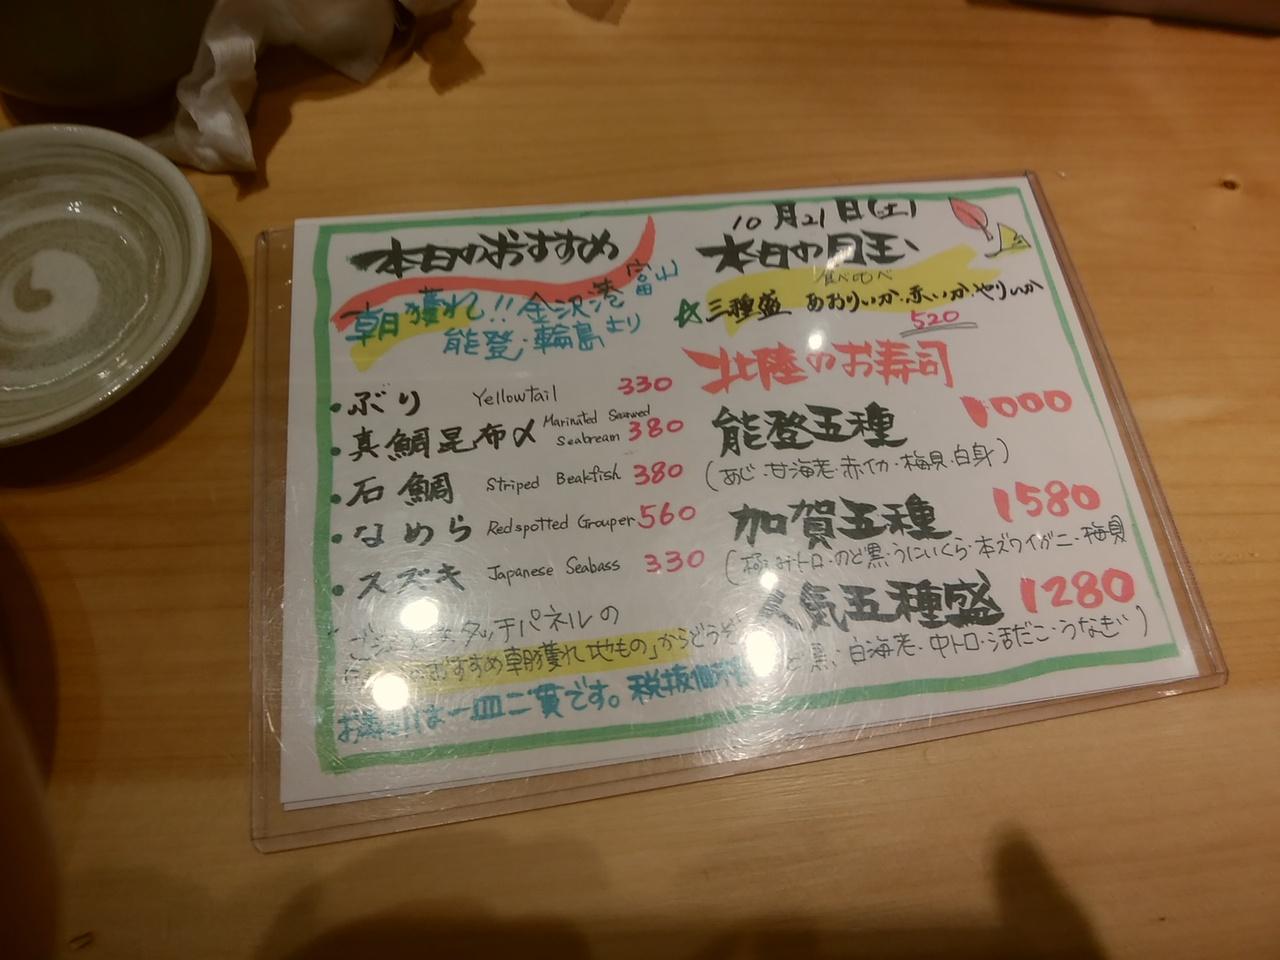 本日のおすすめ
朝獲れ!!金沢港 富山
能登・輪島より
・ぶり Yellowtail 330
・真鯛昆布〆 Marinated Seaweed Seabream 380
・石鯛 Striped Beakfish 380
・なめら Redspotted Grouper 560
・スズキ Japanese Seabass 330
タッチパネルの
おすすめ朝獲れ地もの」からどうぞ
お寿司は一皿二貫です。税抜価
10月21日(土)
本日の目玉、
食べ比べ
☆三種盛 あおりいか・赤いか・やりいか
520
北陸のお寿司
能登五種 1000
(あじ・甘海老・赤イカ・梅貝・白身)
加賀五種 1580
(極みトロ・のど黒・うにいくら・本ズワイガニ・梅貝
人気五種盛 1280
ど黒・白海老・中トロ・活だこ・うなぎ)